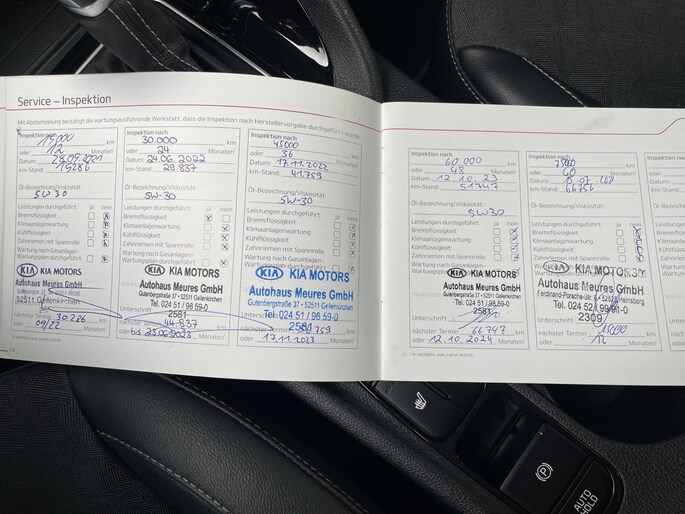 Service – Inspektion
Mit Abstempelung bestätigt die wartungsausführende Werkstatt, dass die Inspektion nach Herstellervorgabe durchgeführt wurde:
Inspektion nach
15000 km
oder 12 Monaten
Datum: 28.09.2021
km-Stand: 15286
Öl-Bezeichnung/Viskosität:
5W30
Leistungen durchgeführt: ja nein
Bremsflüssigkeit
Klimaanlagenwartung
Kühlflüssigkeit
Zahnriemen mit Spannrolle
Wartung nach Gasanlagen-
Wartungsplan
KIA KIA MOTORS
Autohaus Meures GmbH
52511 Geilenkirchen
nächster Termin 30286 km
oder 09/22 Monaten
Inspektion nach
30.000 km
oder 24 Monaten
Datum: 24.06.2022
km-Stand: 29.837
Öl-Bezeichnung/Viskosität:
5W-30
Leistungen durchgeführt: ja nein
Bremsflüssigkeit
Klimaanlagenwartung
Kühlflüssigkeit
Zahnriemen mit Spannrolle
Wartung nach Gasanlagen-
Wartungsplan
KIA KIA MOTORS
Autohaus Meures GmbH
Gutenbergstraße 37 • 52511 Geilenkirchen
Tel. 024 51 / 98 59-0
2581
Unterschrift
nächster Termin 44.837 km
oder bis 23.06.2023 Monaten
Inspektion nach
45000 km
oder 36 Monaten
Datum: 17.11.2022
km-Stand: 41.759
Öl-Bezeichnung/Viskosität:
5W-30
Leistungen durchgeführt: ja nein
Bremsflüssigkeit
Klimaanlagenwartung
Kühlflüssigkeit
Zahnriemen mit Spannrolle
Wartung nach Gasanlagen-
Wartungsplan
KIA KIA MOTORS
Autohaus Meures GmbH
Gutenbergstraße 37 • 52511 Geilenkirchen
Tel. 024 51 / 98 59-0
2581
Unterschrift
nächster Termin km
oder 17.11.2023 Monaten
Inspektion nach
60.000 km
oder 48 Monaten
Datum: 12.10.23
km-Stand: 51747
Öl-Bezeichnung/Viskosität:
5W30
Leistungen durchgeführt: ja nein
Bremsflüssigkeit
Klimaanlagenwartung
Kühlflüssigkeit
Zahnriemen mit Spannrolle
Wartung nach Gasanlagen-
Wartungsplan
KIA KIA MOTORS
Autohaus Meures GmbH
Gutenbergstraße 37 • 52511 Geilenkirchen
Tel. 024 51 / 98 59-0
2581
Unterschrift
nächster Termin 66747 km
oder 12.10.2024 Monaten
Inspektion nach
75000 km
oder 60 Monaten
Datum:
km-Stand: 66756
Öl-Bezeichnung/Viskosität:
Leistungen durchgeführt: ja nein
Bremsflüssigkeit
Klimaanlagenwartung
Kühlflüssigkeit
Zahnriemen mit Spannrolle
Wartung nach Gasanlagen-
KIA KIA MOTORS
Autohaus Meures GmbH
Tel. 024 52 /
2309
Unterschrift
nächster Termin 15000 km
oder 12 Monaten
Inspektion nach
oder
Datum:
km-Stand:
Öl-Bezeichnung
Leistungen
Bremsflüssigkeit
Kühlflüssigkeit
Unterschrift
nächster
oder
AUTO
HOLD